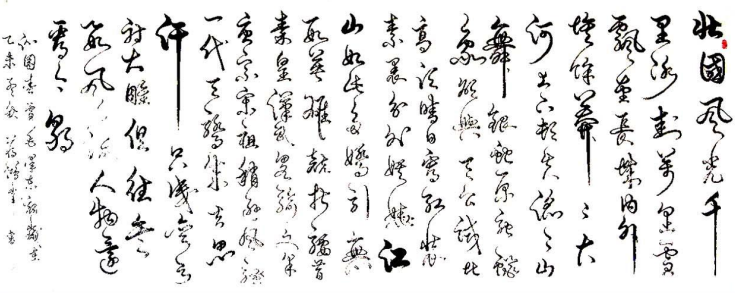 北國風光千
里冰封萬里雪
飄望長城內外
惟餘莽莽大
河上下頓失滔滔山
舞銀蛇原馳蠟
象欲與天公試比
高須晴日看紅裝
素裹分外妖嬈江
山如此多嬌引無
數英雄競折腰昔
秦皇漢武略輸文采
唐宗宋祖稍遜風騷
一代天驕成吉思
汗只識彎弓
射大雕俱往矣
數風流人物還
看今朝
沁園春雪毛澤東
乙未